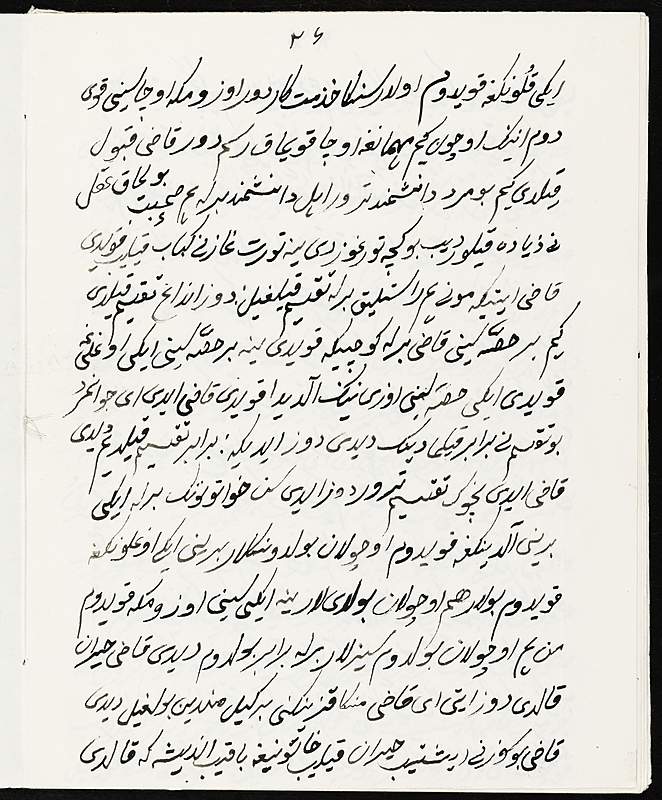 ۲۶
ایکی قلونکغه قویدوم اولار سنکا خذمت کار دور اوزومکه اوچاسینی قوی
دوم انینک اوچون کیم مهمانغه اوچا قویماق رسم دور قاضی قبول
قیلدی کیم بو مرد دانشمند تر ور ایل دانشمند بیرله هم صحبت بولماق عقل
نی زیاده قیلور دیب بو کیچه تورغوزدی ینه تورت غازنی کباب قیلیب قویدی
قاضی ایتدیکه مونی هم راستلیق برله تقسیم قیلغیل دوزانداغ تقسیم قیلدی
کیم بر حصه سینی قاضی برله کوچیکه قویدی ینه بر حصه سینی ایکی اوغلیغه
قویدی ایکی حصه سینی اوزی نینک آلدیدا قویدی قاضی ایدی ای جوانمرد
بو تقسیم نی برابر قیلمادینک دیدی دوز ایدیکه برابر تقسیم قیلدیم دیدی
قاضی ایدی نچوک تقسیم تورور دوز ایدی سن خواتونونک برله ایکی
برینی آلدینکغه قویدوم اوچولان بولدونکلار برینی ایکی اوغلونکغه
قویدوم بولار هم اوچولان بولدیلار ینه ایکی سینی اوزومکه قویدوم
من هم اوچولان بولدوم سیزلار برله برابر بولدوم دیدی قاضی حیران
قالدی دوز ایتی ای قاضی منکا قزینکنی بیرکیل مندین بولغیل دیدی
قاضی بو سوزنی ایشتیب حیران قیلیب خاتونیغه باقیب اندیشه که قالدی